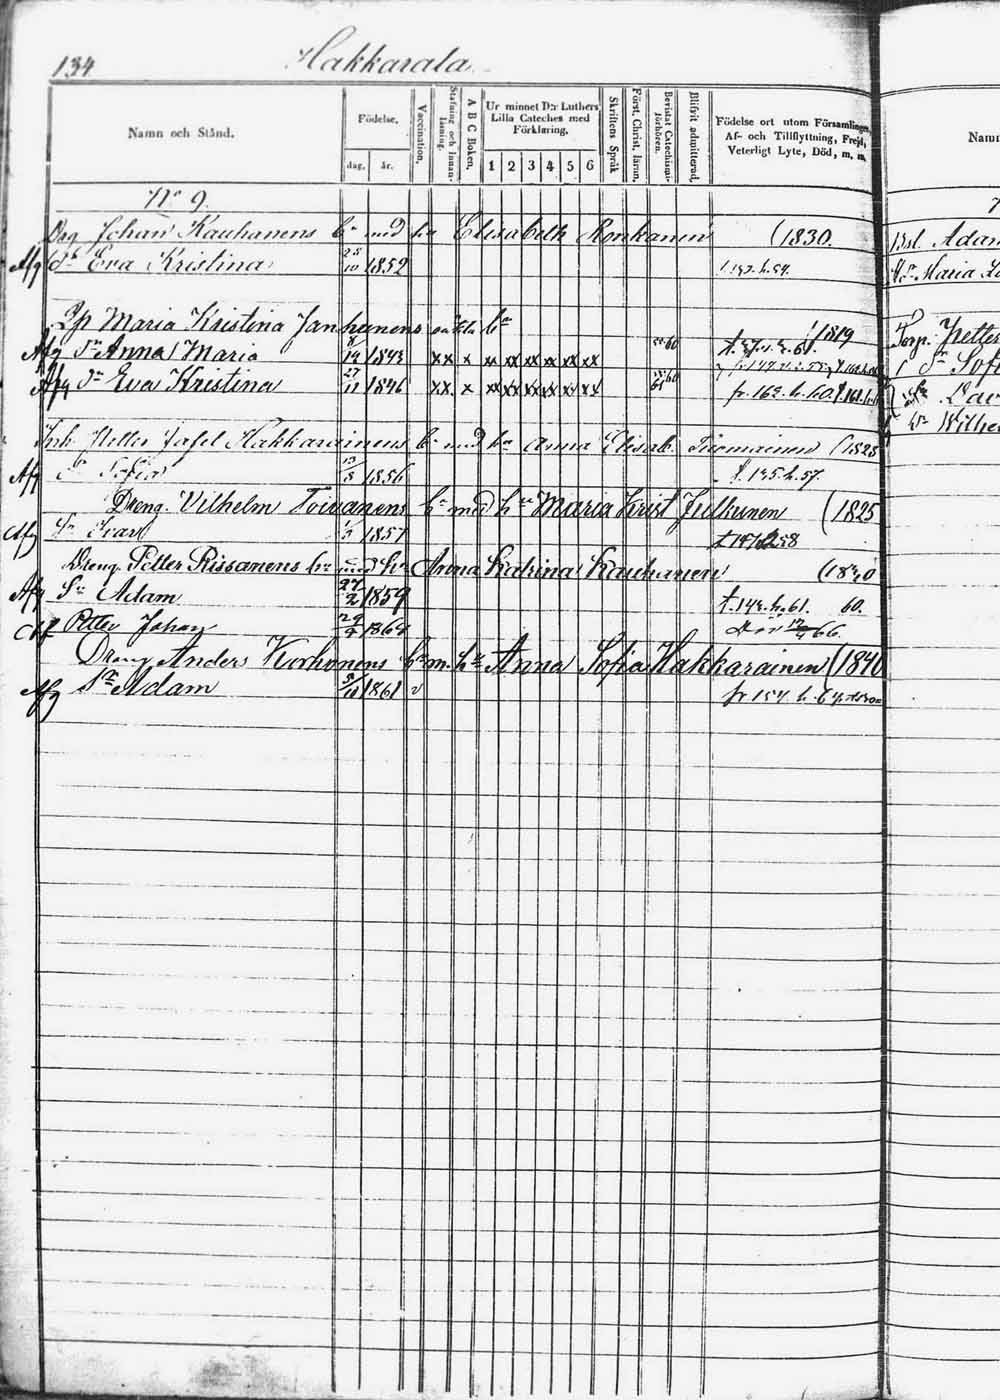 134
Hakkarala
Namn och Stånd.
Födelse,
dag,
år.
Vaccination.
Stafning och Innan-läsning.
A B C Boken.
Ur minnet D:r Luthers Lilla Cateches med Förklaring.
1 2 3 4 5 6
Skriftens Språk
Först. Christ. lärun.
Bevistat Catechismi-förhören.
Blifvit admitterad.
Födelse ort utom Församlingen,
Af- och Tillflyttning, Frejd,
Veterligt Lyte, Död, m. m.
N:o 9.
Drg Johan Kauhanens b:n med h:u Elisabeth Ronkanen (1830.
Afg d:r Eva Kristina 28/10 1852
Lp Maria Kristina Janhunens oäkta b:n 1819
Afg d:r Anna Maria 1843 xx x xx xx xx xx xx xx
Afg d:r Eva Kristina 27/11 1846 xx x xx xx xx xx xx xx
Inh Petter Jafet Hakkarainens b:n med h:u Anna Elisab. Tuomainen (1828
Afg Sofia 1856 t. 135. h. 57.
Dreng. Vilhelm Toivanens b:n med h:u Maria Krist Julkunen (1825
Afg S:n Ivar 1857
Dreng Petter Rissanens b:n med h:u Anna Katrina Kauhanen (1830
Afg S:n Adam 27/2 1859 t. 143. h. 61. 60.
Petter Johan 29/4 1864 66.
Dreng Anders Korhonens b:n m. h:u Anna Sofia Hakkarainen (1840
Afg S:n Adam 1861 v fr 154. h. 64
Bsl. Adam
Maria
Torp. Petter
d:r Sofi
Wilhe